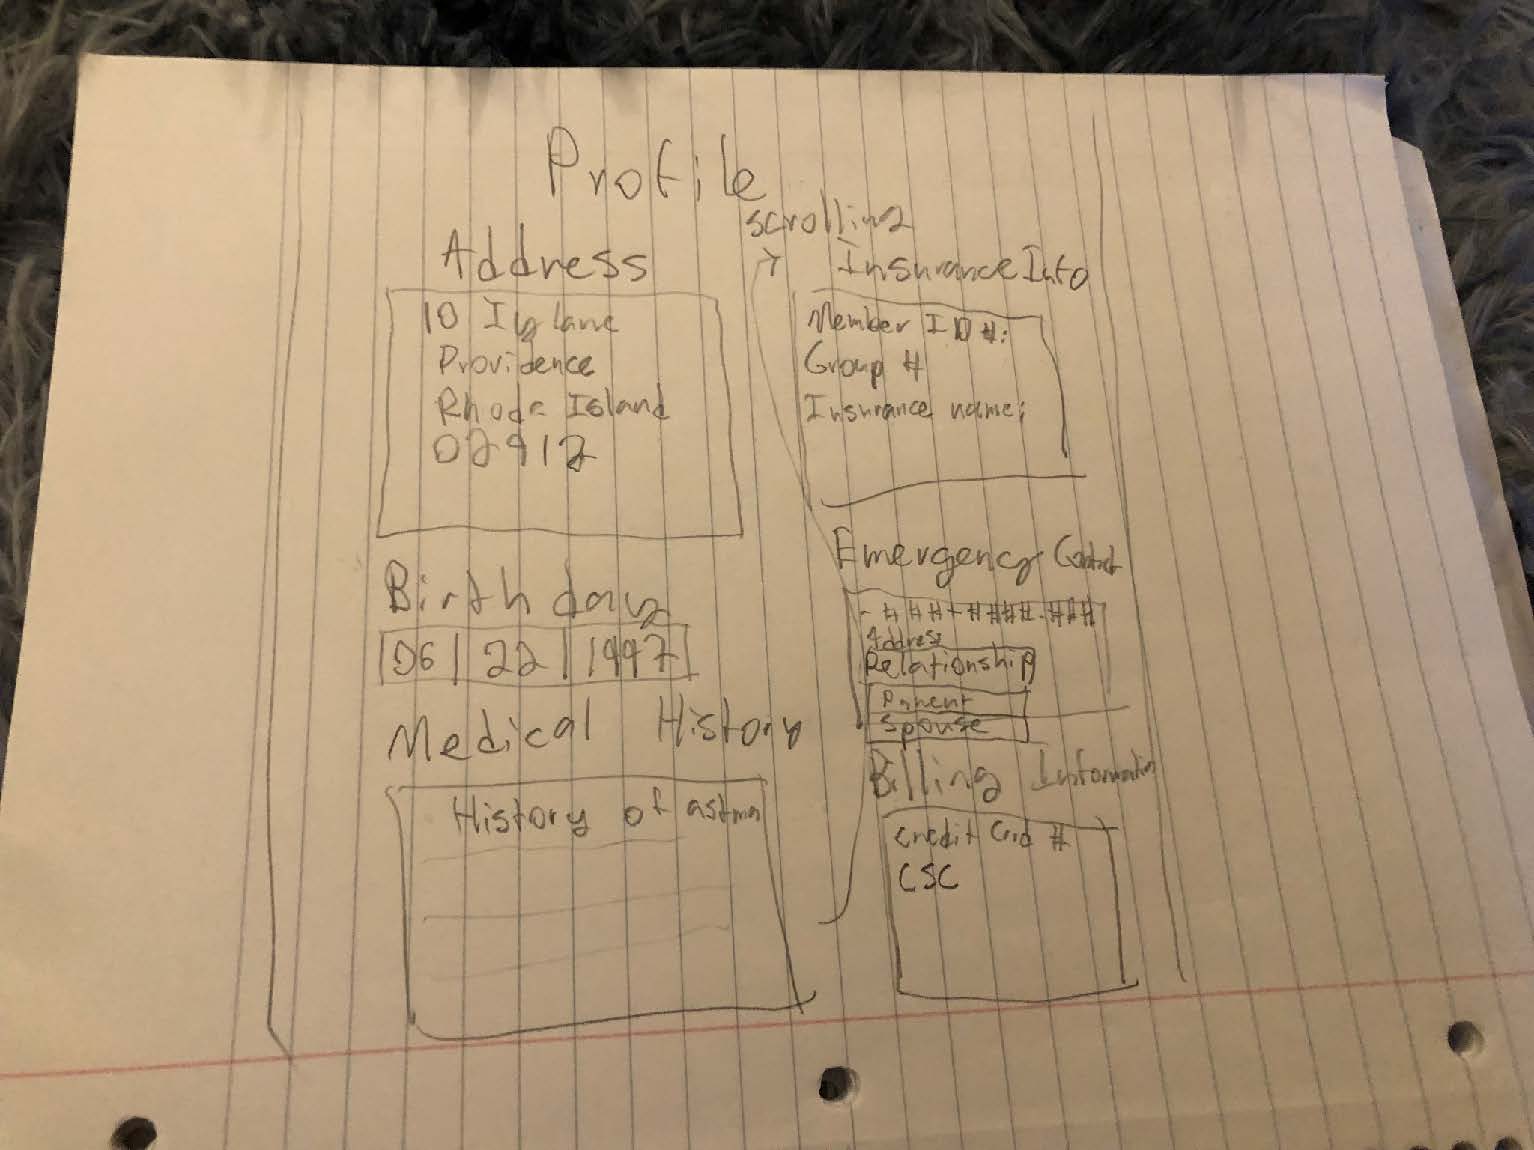 Profile
Address
10 Ily lane
Providence
Rhode Island
02912
Birthday
06 22 1997
Medical History
History of astma
scrolling
Insurance Info
Member ID #:
Group #
Insurance name:
Emergency Contact
- ###-####-###
Address
Relationship
Parent
Spouse
Billing Information
Credit Card #
CSC